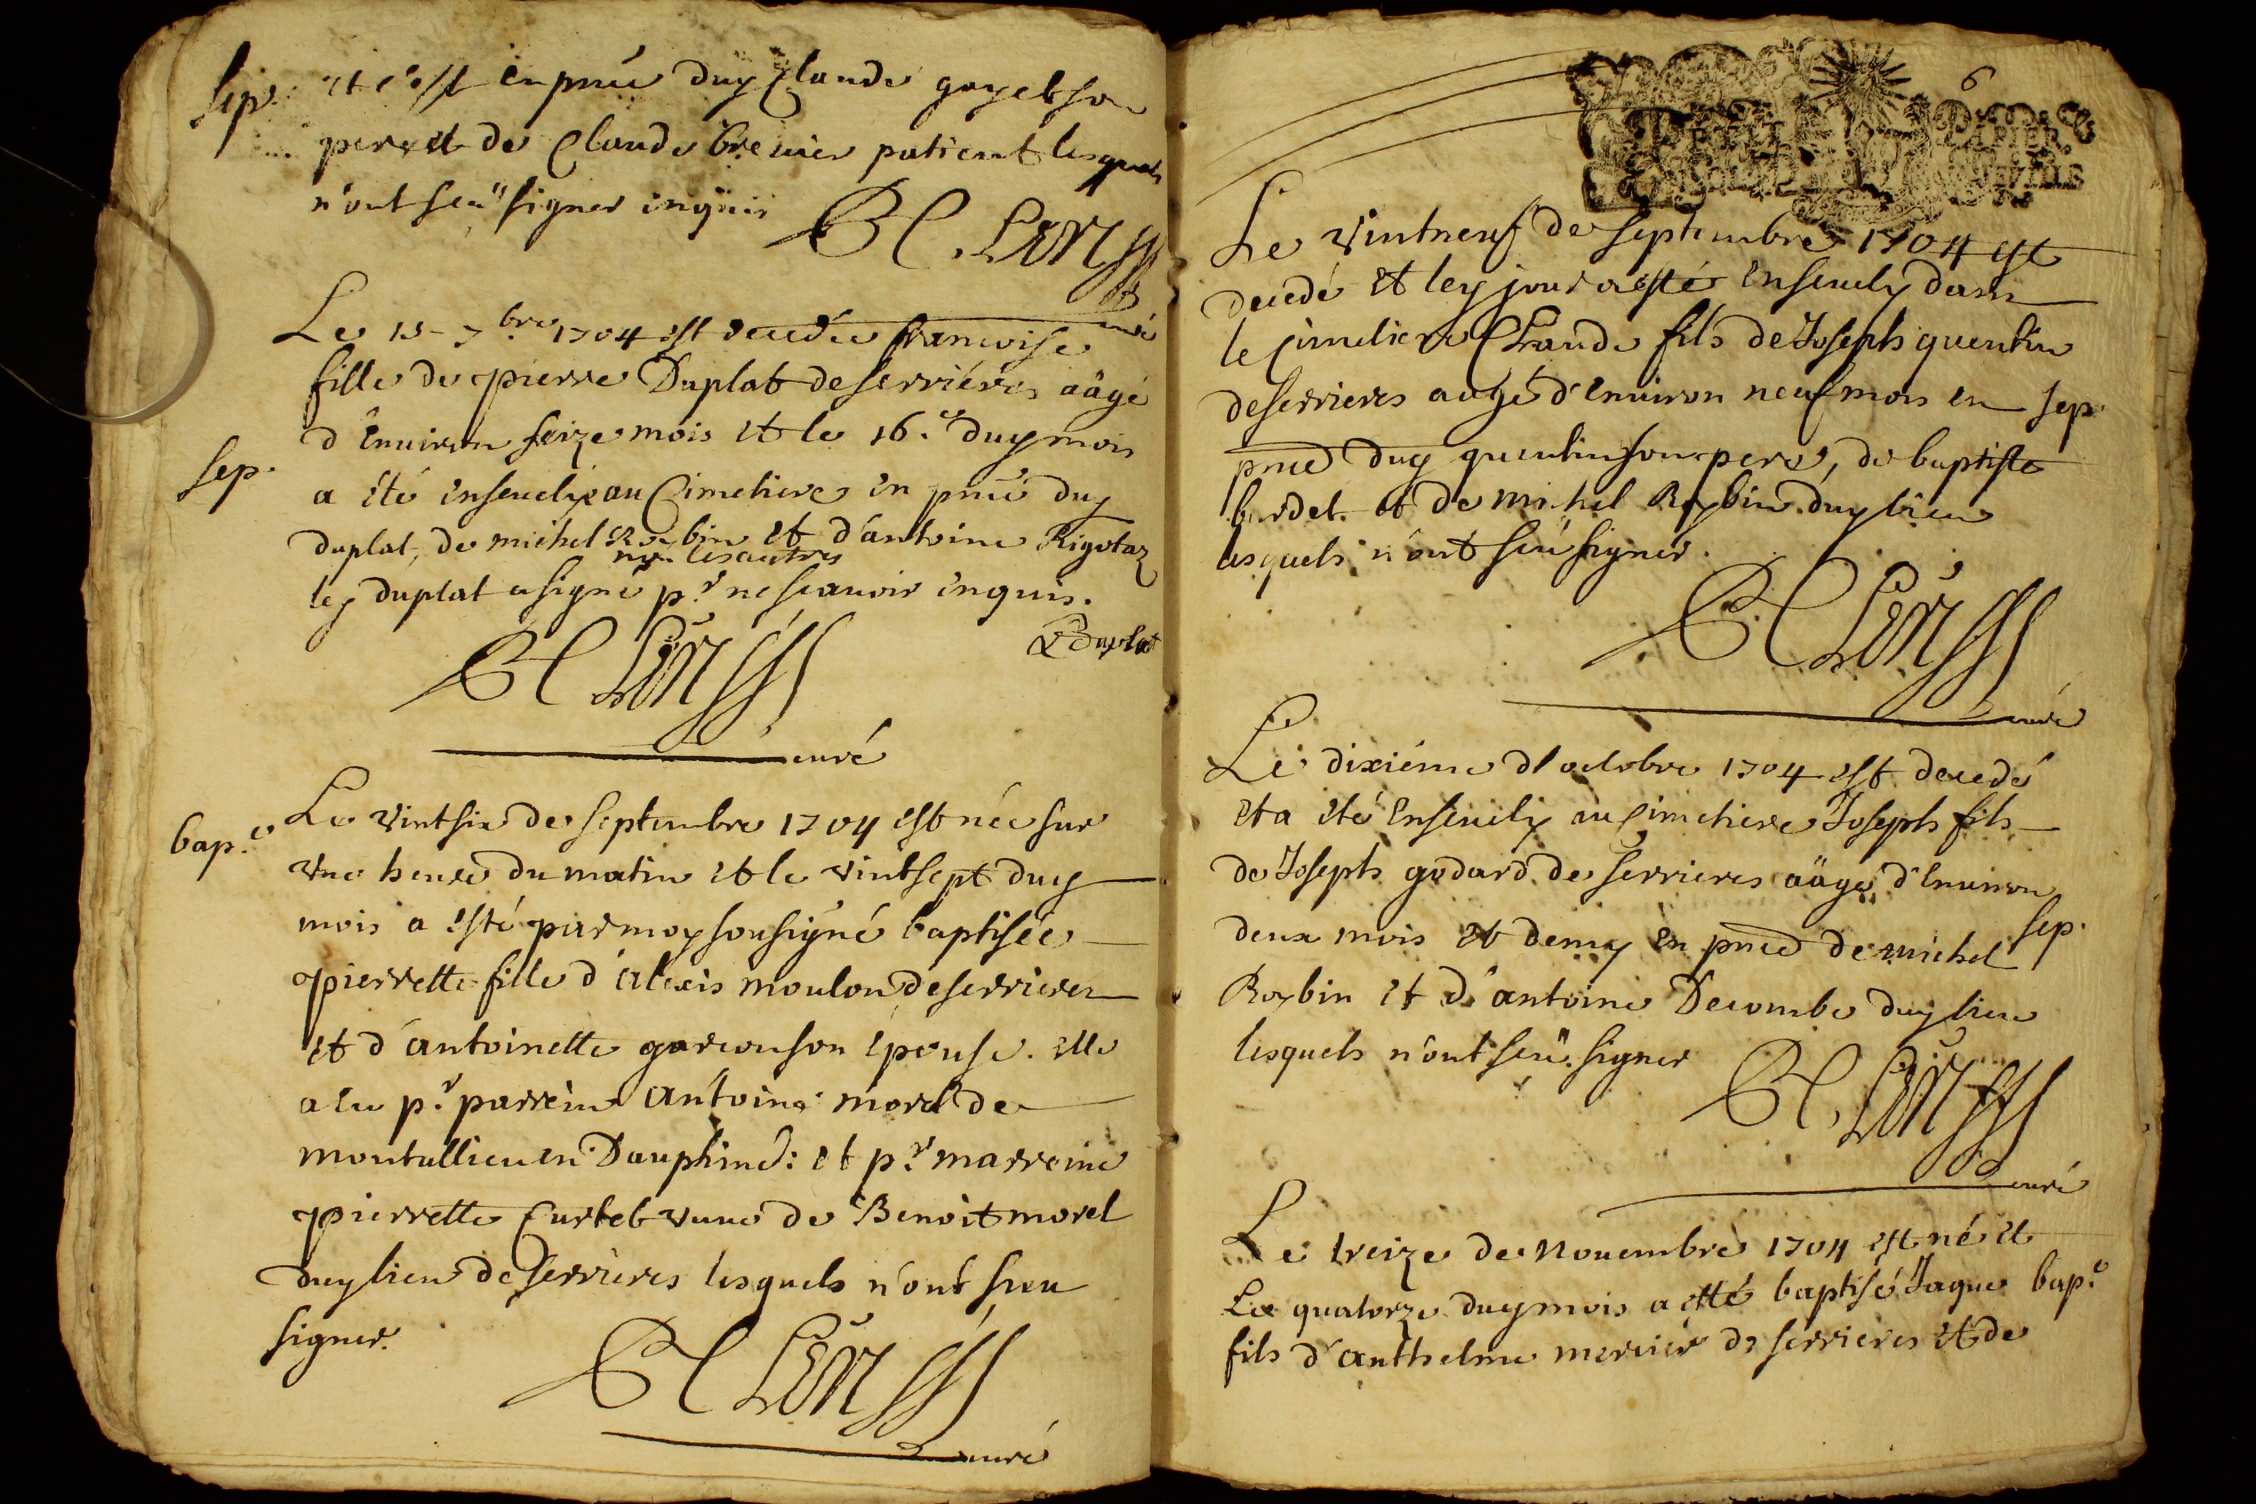 Sep.
et c'est en pnce duy Claude goyet son
pere et de Claude brevier patient lesquels
n'ont sceu signer enquis
curé
Le 15 7bre 1704 est decedée francoise
fille de pierre Duplat de serriéres aàgé
d'environ seize mois et le 16.e duy mois
Sep.
a été ensevelye au Cimetiere en pnce duy
duplat, de michel Roybin et d'antoine Rigotaz
non les autres
ley duplat a signé p.r ne scavoir enquis.
P Duplat
curé
bap.e
Le vintsix de septembre 1704 est née sur
une heure du matin et le vintsept duy
mois a esté par moy sousigné baptisée
pierrette fille d'alexis moulon de serrieres
et d'antoinette garcon son épouse. elle
a eu p.r parrein antoine morel de
montallieu en Dauphiné: et p.r marreine
pierrette Curtet vuve de Benoit morel
duy lieu de serrieres lesquels n'ont sceu
signer.
curé
6
PAPIER
Le vintneuf de septembre 1704 est
decedé et ley jour a esté ensevely dans
le cimetiere Claude fils de Joseph quentin
de serrieres aagé d'environ neuf mois en
Sep.
pnce duy quentin son pere, de baptiste
burdet. et de michel Roybin duy lieu
lesquels n'ont sceu signer.
curé
Le dixiéme d'octobre 1704 est decedé
et a eté ensevely au cimetiere Joseph fils
de Joseph godard de serrieres aàgé d'environ
deux mois et demy en pnce de michel
Sep.
Roybin et d'antoine Decombe duy lieu
lesquels n'ont sceu signer
curé
Le treize de Novembre 1704 est né et
Le quatorze duy mois a etté baptisé Jaque
bap.e
fils d'anthelme mercier de serrieres et de